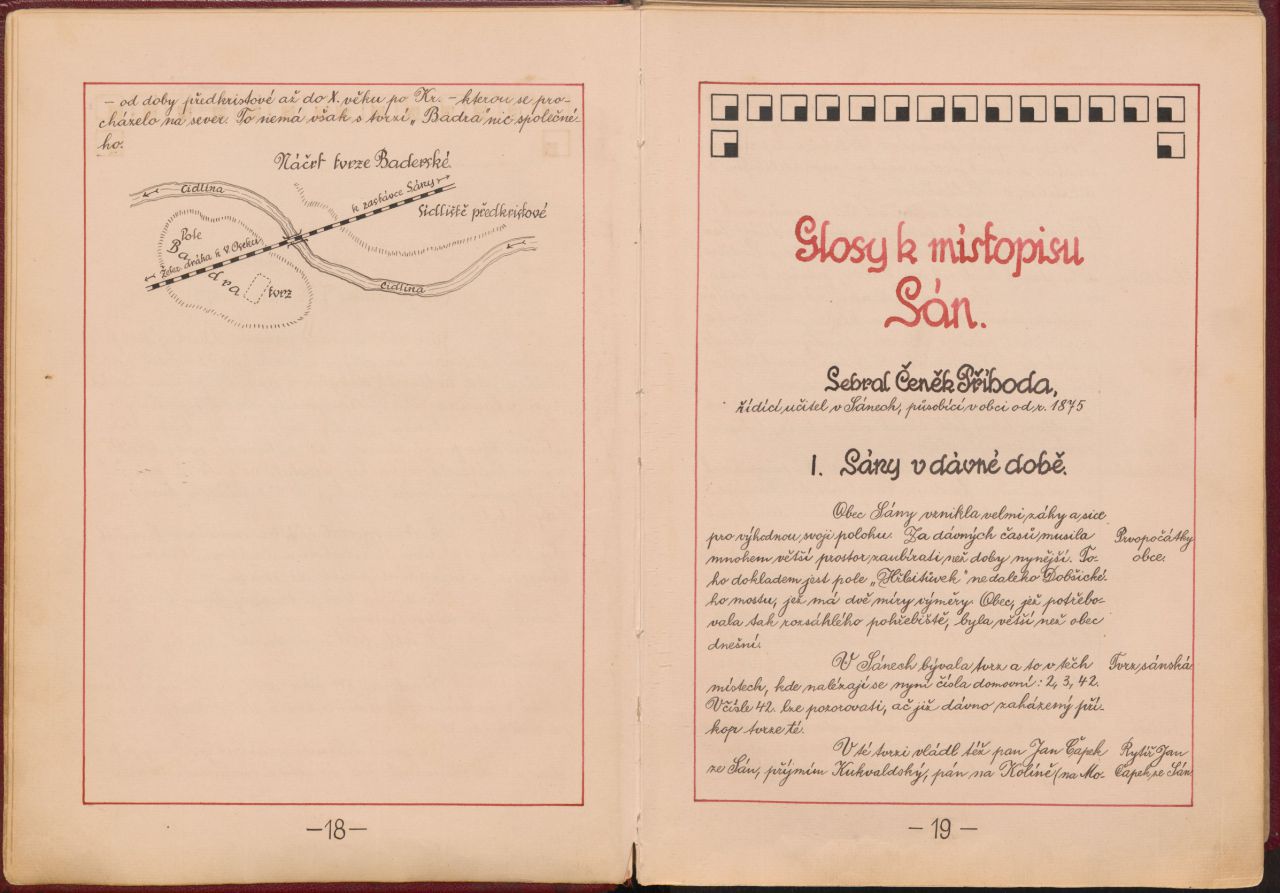 – od doby předkristové až do X. věku po Kr. – kterou se pro-
cházelo na sever. To nemá však s tvrzí „Badra" nic společné-
ho.
Náčrt tvrze Baderské.
Cidlina
k zastávce Sány
Sídliště předkristové
Pole
Badra
Želez. dráha k V. Oseku
tvrz
Cidlina
–18–
Glosy k místopisu
Sán.
Sebral Čeněk Příhoda,
řídící učitel v Sánech, působící v obci od r. 1875
I. Sány v dávné době.
Obec Sány vznikla velmi záhy a sice
pro výhodnou svoji polohu. Za dávných časů musila
mnohem větší prostor zaubírati než doby nynější. To-
ho dokladem jest pole „Hřbitůvek" nedaleko Dobšické-
ho mostu, jež má dvě míry výměry. Obec, jež potřebo-
vala tak rozsáhlého pohřebiště, byla větší než obec
dnešní.
Prvopočátky
obce.
V Sánech bývala tvrz a to v těch
místech, kde nalézají se nyní čísla domovní: 2, 3, 42.
V čísle 42. lze pozorovati, ač již dávno zaházený pří-
kop tvrze té.
Tvrz sánská
V té tvrzi vládl též pan Jan Čapek
ze Sán, příjmím Kukvaldský, pán na Kolíně (na Mo-
Rytíř Jan
Čapek ze Sán
–19–